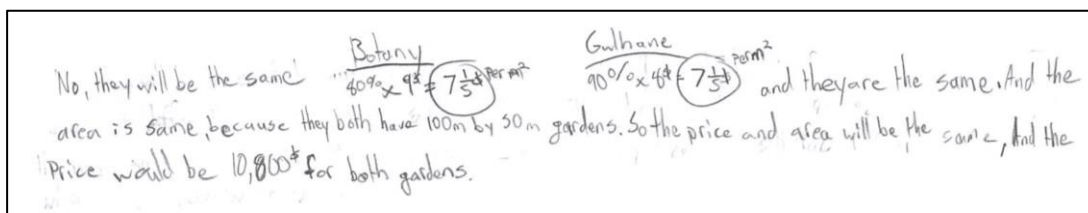 Botany Gulhane
No, they will be the same 80% x 9$ = 7 1/5 $ per m² 90% x 8$ = 7 1/5 $ per m² and they are the same. And the
area is same, because they both have 100m by 50m gardens. So the price and area will be the same, And the
Price would be 10,800$ for both gardens.